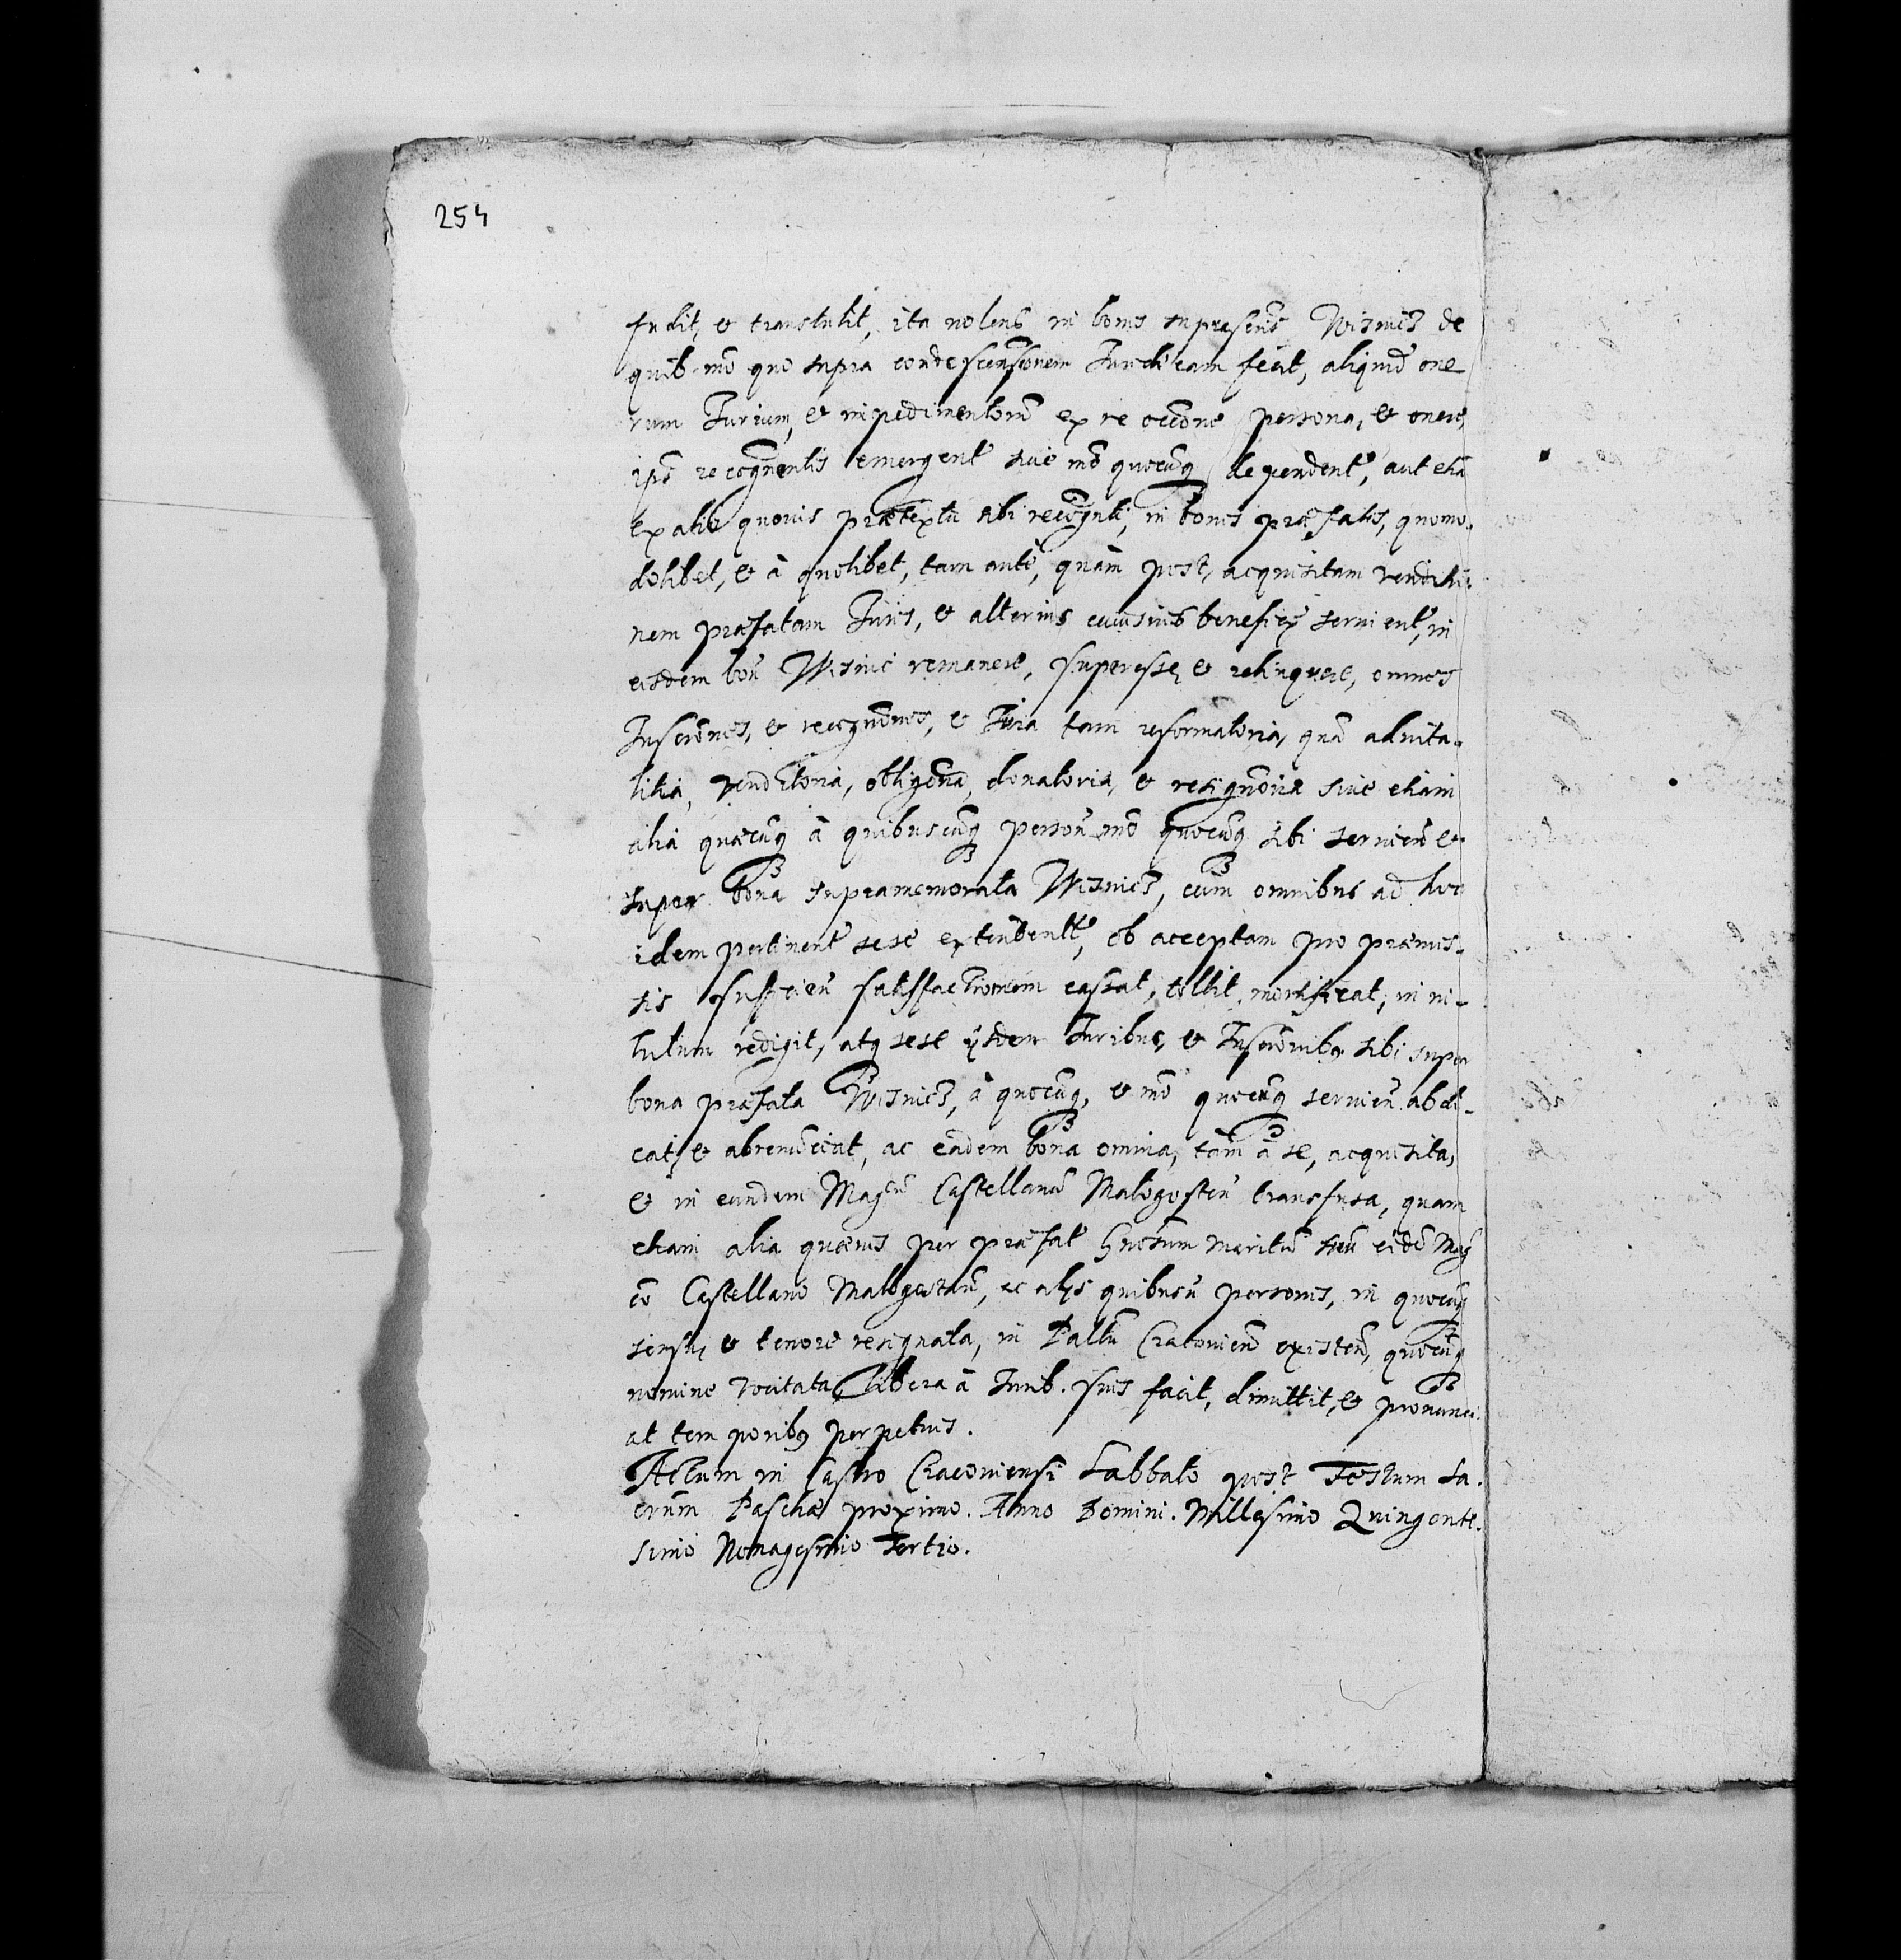 254
fudit, & transtulit, ita nolens in bonis suprascris Wisnics de
quib. mo quo supra condescensionem Iuridicam fecit, aliquid one
rum Iurium, & impedimentorũ ex re occõne persona, & onere
ips recogñentis emergent siue mõ quocũq dependent, aut etiã
ex alio quouis prætextu sibi recogñti, in bonis præfatis, quomo-
dolibet, & à quolibet, tam ante, quàm post, acquisitam venditio-
nem præfatam Iuris, & alterius cuiusuis beneficÿ seruient, in
eisdem boñ Wisnic remanere, superesse, & relinquere, omnes
Inscrõnes, & recogñões, & Iura tam reformatoria, quã aduita-
litia, venditoria, obligatoria, donatoria, & resigñoria siue etiam
alia quæcũq à quibuscũq persoñ mõ quocũq sibi serviend &
super bona supramemorata Wisnics, cum omnibus ad hoc
idem pertinent sese extendent, ob acceptam pro præmis-
sis sufficieñ satisfactionem cassat, tollit, mortificat, in ni-
hilum redigit, atq sese ijsdem Iuribus, & Inscrõnibq sibi super
bona præfata Wisnics, à quocũq, & mõ quocũq servieñ abdi-
cat, & abrenũciat, ac eadem bona omnia, tàm à se, acquisita,
& in eundem Magcũ Castellanũ Malogosteñ transfusa, quam
etiam alia quæuis per præfat Gnosum maritũ suũ eidẽ Mag
co Castellano Malogosteñ, ac alÿs quibusũ personis, in quocũq
sensu, & tenore resignata, in Pallũ Cracovieñ existeñ, quocũq
nomine vocitata, libera à Iurib. suis facit, dimittit, & pronunci-
at temporibq perpetuis.
Actum in Castro Cracoviensi Sabbato post Festum Sa-
crum Paschæ proximo. Anno Domini. Millesimo Quingente-
simo Nonagesimo Tertio.